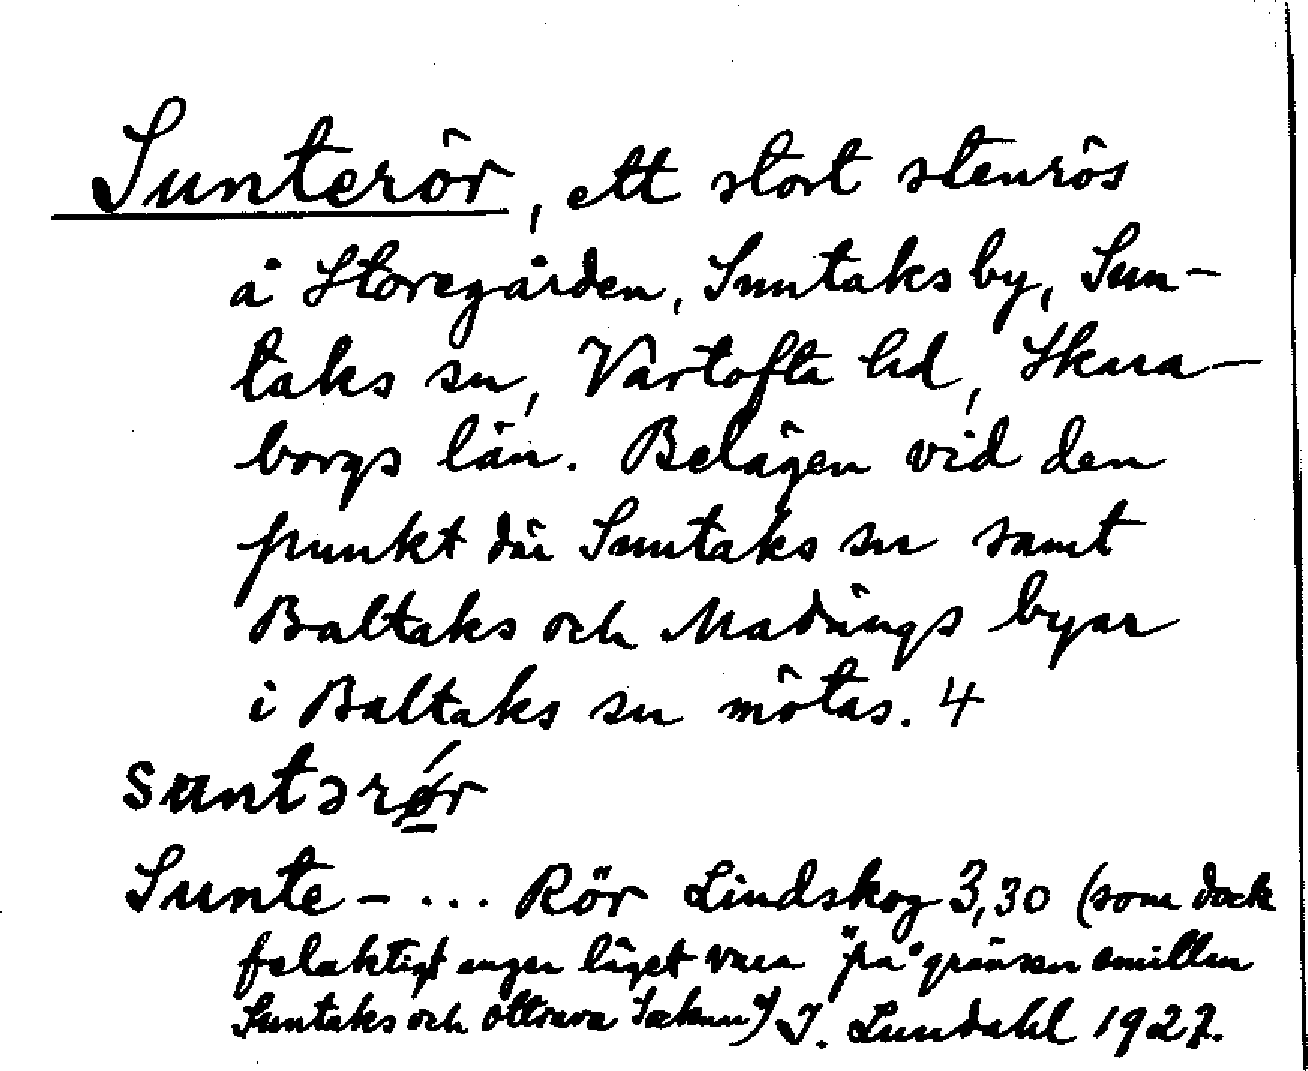 Sunterör, ett stort stenrös
å Storegården, Suntaks by, Sun-
taks sn, Vartofta hd, Skara-
borgs län. Belägen vid den
punkt där Suntaks sn samt
Baltaks och Madängs byar
i Baltaks sn mötas. 4
suntərǿr
Sunte- ... Rör Lindskog 3,30 (som dock
felaktigt anger läget vara "på gränsen emillan
Suntaks och Ottrava Soknar") I. Lundahl 1927.